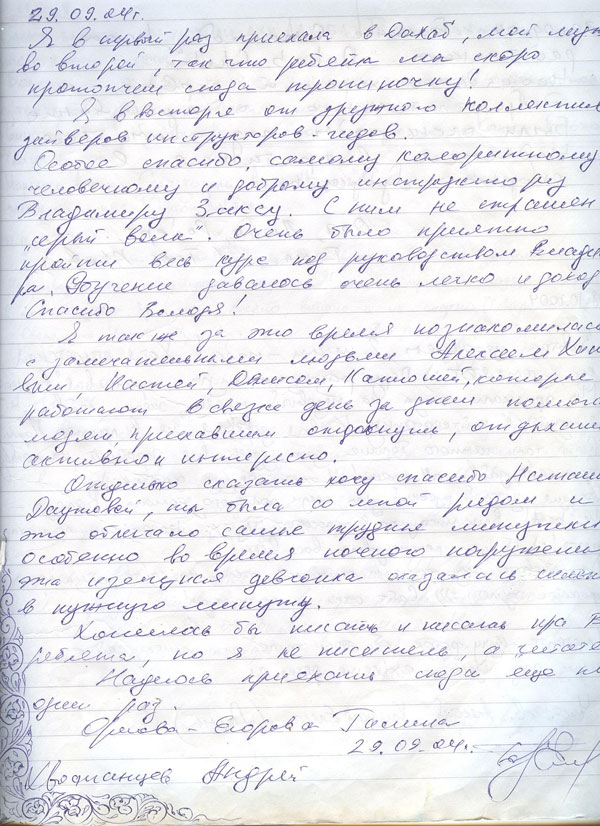 29.09.04г.
Я в первый раз приехала в Дахаб, мой муж
во второй, так что ребята мы скоро
протопчем сюда тропиночку!
Я в восторге от дружного коллектива
дайверов инструкторов-гидов.
Особое спасибо, самому колоритному
человечному и доброму инструктору
Владимиру Заксу. С ним не страшен
"серый волк". Очень было приятно
пройти весь курс под руководством Влади
ра. Обучение давалось очень легко и доход
Спасибо Володя!
Я также за это время познакомилась
с замечательными людьми Алексеем
вым, Настей, Денисом, Катюшей, которые
работают в связке день за днем помога
людям, приехавшим отдохнуть, отдыхать
активно и интересно.
Отдельно сказать хочу спасибо Наташе
Даутовой, ты была со мной рядом и
это облегчало самые трудные минуты
особенно во время ночного погружения
эта изящная девчонка оказалась
в нужную минуту.
Хотелось бы писать и писать про В
ребята, но я не писатель, а читате
Надеюсь приехать сюда еще не
один раз.
Орлова-Егорова Галина
29.09.04г.
Андрей